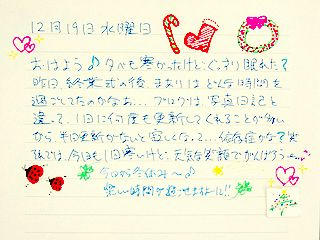 12月19日 水曜日
おはよう♪ 夕べも寒かったけどぐっすり眠れた?
昨日、終業式の後、まありはどんな時間を
過ごしてたのかなぁ… ブログは、写真日記と
違って、1日に何度も更新してくれることが多い
から、半日更新がないと寂しくなって…依存症かな?笑
では、今日も1日寒いけど、元気な笑顔でがんばろう
今日から冬休み〜♪
楽しい時間が過ごせますように!!